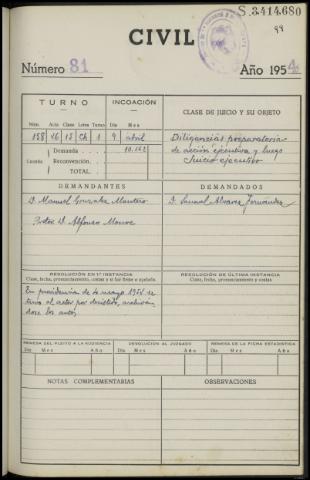 S.3414.680
99
CIVIL
Número 81
Año 1954
TURNO
INCOACIÓN
CLASE DE JUICIO Y SU OBJETO
Núm. Acta Clase Letra Turno Día Mes
158 16 15 Ch 1 9 abril
Demanda 10.162
Cuantía Reconvención.
TOTAL.
Diligencias preparatorias
de acción ejecutiva y luego
Juicio ejecutivo
DEMANDANTES
DEMANDADOS
D. Manuel Gonzalez
Procter D. Alfonso
D. Samuel Alvarez Fernández
RESOLUCIÓN EN 1.ª INSTANCIA
Clase, fecha, pronunciamiento, costas y si fué firme o apelada.
RESOLUCIÓN DE ÚLTIMA INSTANCIA
Clase, fecha, pronunciamiento y costas.
En providencia de 4 mayo 1954 se
tuvo al actor por desistido, archiván
dose los autos.
REMESA DEL PLEITO A LA AUDIENCIA
DEVOLUCION AL JUZGADO
REMESA DE LA FICHA ESTADISTICA
Día Mes Año
Día Mes Año
Día Mes Año
NOTAS COMPLEMENTARIAS
OBSERVACIONES